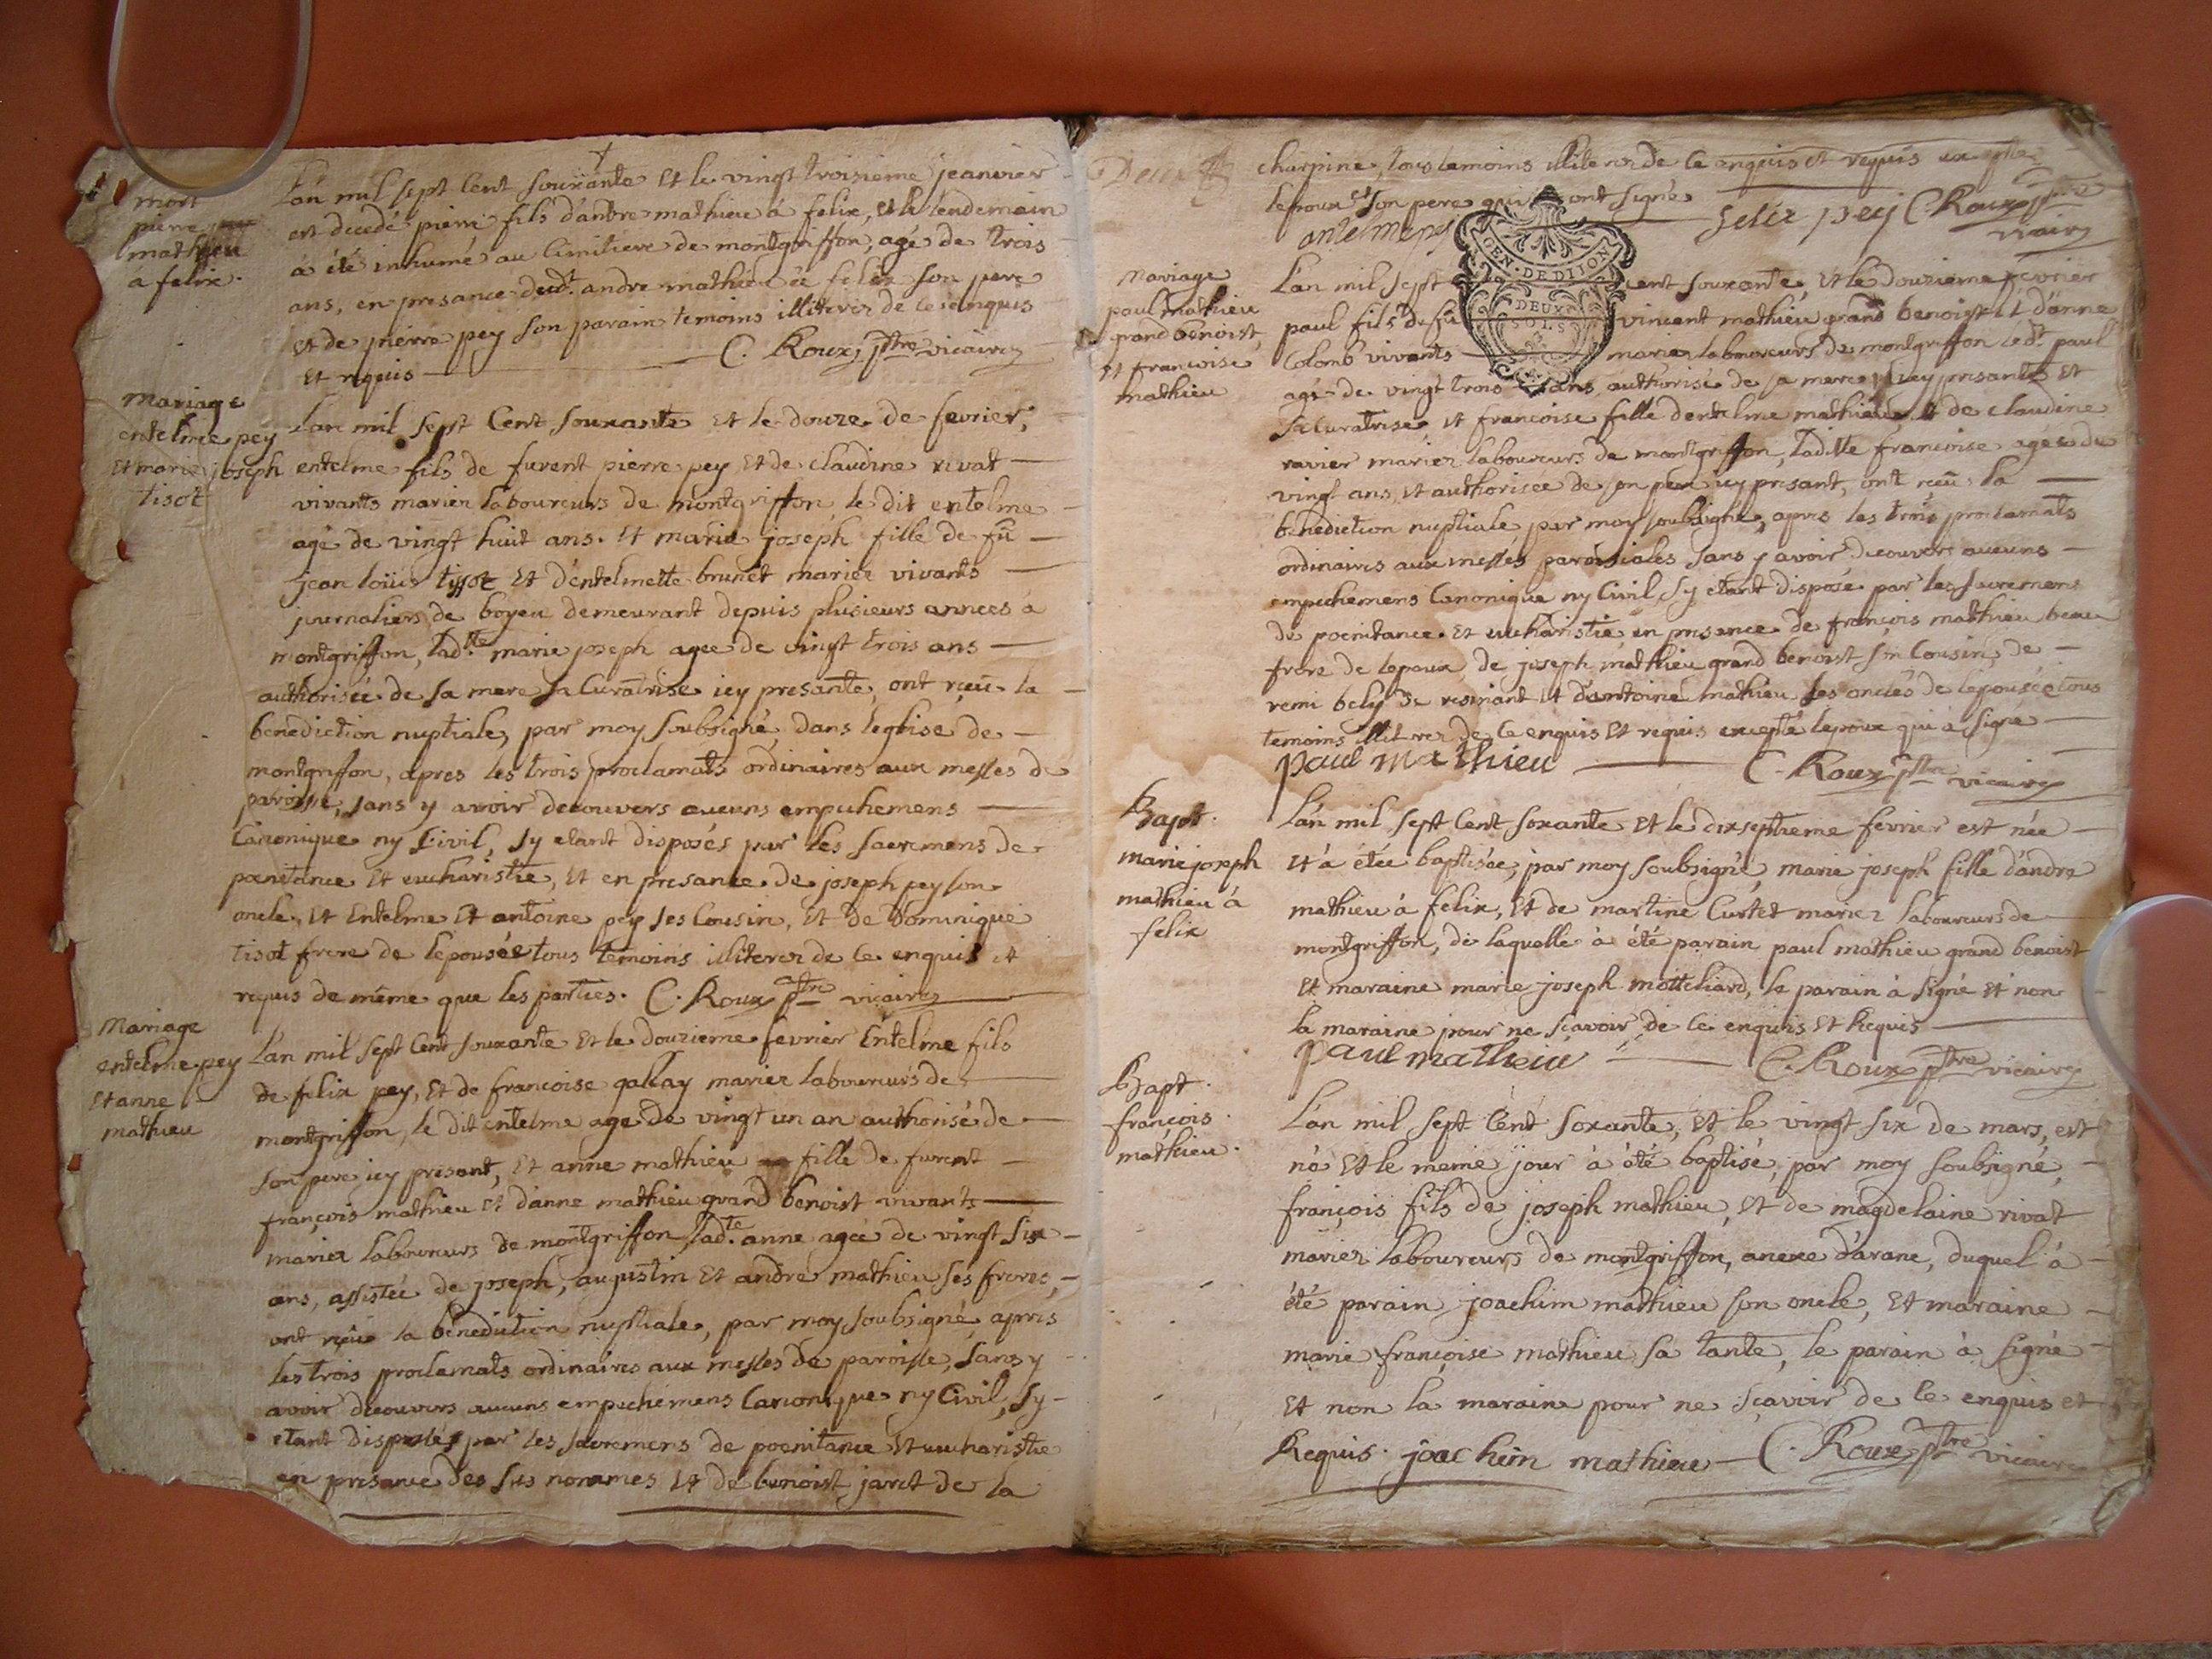 mort
pierre
mathieu
à felix.
L'an mil sept cent souxante et le vingt troisieme jeanvier
est decedé pierre fils d'andre mathieu à felix, et le lendemain
à été inhumé au cimitiere de montgriffon, agé de trois
ans, en presance dudt. andre mathieu à felix son pere
et de pierre pey son parain temoins illiterez de ce enquis
et requis — C. Roux ptre vicaire
mariage
entelme pey
et marie joseph
tisot
L'an mil sept cent souxante et le douze de fevrier,
entelme fils de furent pierre pey et de claudine rivat —
vivants mariez laboureurs de montgriffon, le dit entelme —
agé de vingt huit ans. et marie joseph fille de fû —
jean loüis tissot et d'entelmette brunet mariez vivants —
journaliers de boyeu demeurant depuis plusieurs années à
montgriffon, ladte. marie joseph agée de vingt trois ans —
authorisée de sa mere sa curatrise icy presante, ont reçeu la —
benediction nuptiale, par moy soubsigné, dans leglise de —
montgriffon, apres les trois proclamats ordinaires aux messes de
paroisse, sans y avoir decouvers aucuns empechemens —
canonique ny civil, sy etant disposés par les sacremens de
poenitance et eucharistie, et en presance de joseph pey son
oncle, et entelme et antoine pey ses cousin, et de dominique
tisot frere de lepousée tous temoins illiterez de ce enquis et
requis de même que les parties. C. Roux ptre vicaire
mariage
entelme pey
et anne
mathieu
L'an mil sept cent souxante et le douzieme fevrier entelme fils
de felix pey, et de francoise gallay mariez laboureurs de —
montgriffon, le dit entelme age de vingt un an authorisé de —
son pere icy present, et anne mathieu fille de furent —
françois mathieu et d'anne mathieu grand benoist vivants —
mariez laboureurs de montgriffon ladte. anne agée de vingt six —
ans, assistée de joseph, augustin et andré mathieu ses freres, —
ont reçeu la benediction nuptiale, par moy soubsigné, apres
les trois proclamats ordinaires aux messes de paroisse, sans y
avoir decouvers aucuns empechemens canonique ny civil, sy —
etant disposés par les sacremens de poenitance et eucharistie
en presance des sus nommes et de benoist jaret de la
Deux
charpine, tous temoins illiterez de ce enquis et requis excepte
lepoux et son pere qui ont signé
antelme pey felix pey C. Roux ptre
vicaire
GEN. DE DIJON
DEUX
SOLS
mariage
paul mathieu
grand benoist,
et francoise
mathieu
L'an mil sept cent souxante, et le douzieme fevrier
paul fils de fû vincent mathieu grand benoist et d'anne
colomb vivants mariez laboureurs de montgriffon ledt. paul
agé de vingt trois ans, authorisé de sa mere icy presante et
sa curatrise, et francoise fille dentelme mathieu et de claudine
ravier mariez laboureurs de montgriffon, ladite francoise agée de
vingt ans, et authorisée de son pere icy presant, ont reçeu la —
benediction nuptiale par moy soubsigné, apres les trois proclamats
ordinaires aux messes paroissiales sans y avoir decouvers aucuns —
empechemens canonique ny civil, sy etant disposé par les sacremens
de poenitance et eucharistie en presance de françois mathieu beau
frere de lepoux de joseph mathieu grand benoist son cousin, de —
remi bely de resinant et d'antoine mathieu les oncles de lepousée tous
temoins illiterez de ce enquis et requis excepté lepoux qui à signé —
paul mathieu — C. Roux ptre vicaire
Bapt.
marie joseph
mathieu à
felix
L'an mil sept cent soxante et le dixseptieme fevrier est née —
et à étée baptisée, par moy soubsigné, marie joseph fille d'andre
mathieu à felix, et de martine curtet mariez laboureurs de —
montgriffon, de laquelle à été parain paul mathieu grand benoist
et maraine marie joseph motteliard, le parain à signé et non
la maraine pour ne sçavoir de ce enquis et Requis —
paul mathieu — C. Roux ptre vicaire
Bapt.
françois
mathieu.
L'an mil sept cent soxante, et le vingt six de mars, est
né et le meme jour à été baptisé, par moy soubsigné, —
françois fils de joseph mathieu, et de magdelaine rivat
mariez laboureurs de montgriffon, anexe d'arane, duquel à —
été parain joachim mathieu son oncle, et maraine —
marie françoise mathieu sa tante, le parain à signé —
et non la maraine pour ne sçavoir de ce enquis et
Requis. joachim mathieu — C. Roux ptre vicaire